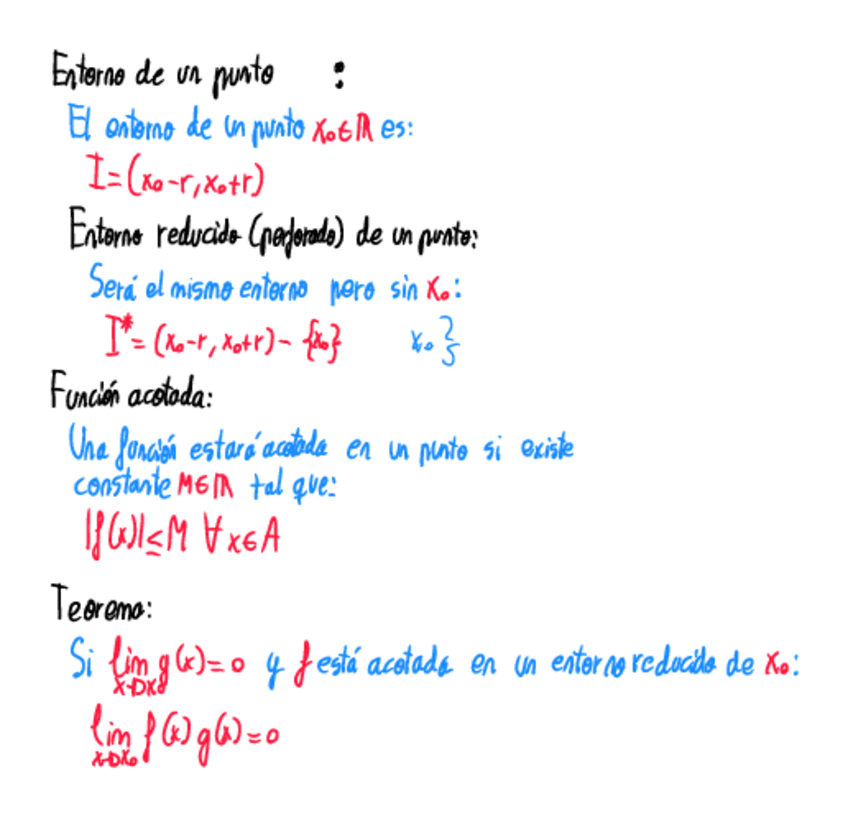 Entorno de un punto :
El entorno de un punto x₀∈ℝ es:
I=(x₀-r,x₀+r)
Entorno reducido (perforado) de un punto:
Será el mismo entorno pero sin x₀:
I*=(x₀-r,x₀+r)-{x₀} x₀}
Función acotada:
Una función estará acotada en un punto si existe
constante M∈ℝ tal que:
|f(x)|≤M ∀x∈A
Teorema:
Si lim x→x₀ g(x)=0 y f está acotada en un entorno reducido de x₀:
lim x→x₀ f(x)g(x)=0